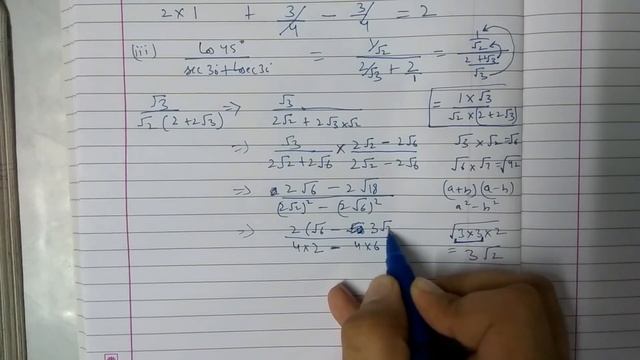 2 × 1 + 3/4 − 3/4 = 2
(iii) cos 45° / sec 30 + cosec 30 = 1/√2 / 2/√3 + 2/1 = 1/√2 / 2+2√3/√3
√3 / √2 (2+2√3) ⇒ √3 / 2√2 + 2√3×√2 = 1×√3 / √2×(2+2√3)
⇒ √3 / 2√2+2√6 × 2√2 − 2√6 / 2√2 − 2√6 √3 × √2 = √6
√6 × √7 = √42
⇒ 2√6 − 2√18 / (2√2)² − (2√6)² (a+b) (a−b)
a² − b²
⇒ 2(√6 − 3√2 / 4×2 − 4×6 √3×3×2
= 3√2